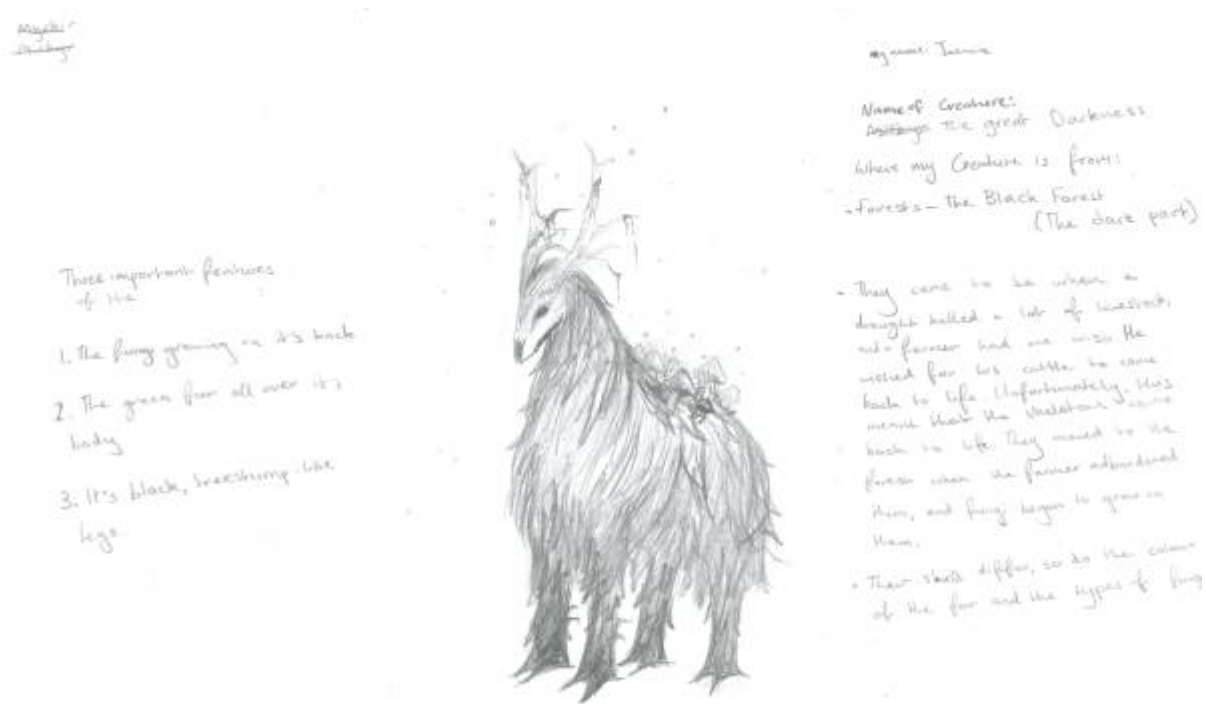 Three important features
of the
1. The fungi growing on it's back
2. The green fur all over it's
body
3. It's black, treestump-like
legs
my name:
Name of Creature:
The great Darkness
Where my Creature is from:
- Forests - The Black Forest
(The dark part)
• They came to be when a
drought killed a lot of livestock,
farmer had one wish. He
wished for his cattle to come
back to life. Unfortunately, this
meant that the skeletons came
back to life. They moved to the
forest when the farmer
them, and fungi began to grow on
them.
• Their skulls differ, so do the colour
of the fur and the types of fungi